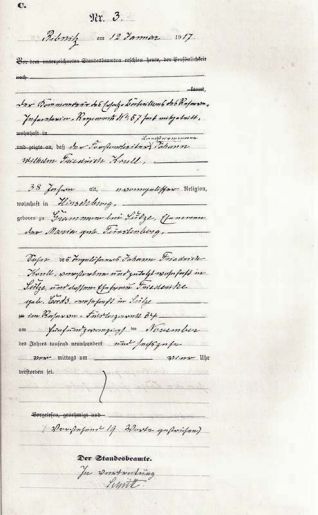 C.
Nr. 3.
Ribnitz am 12 Januar 1917.
Vor dem unterzeichneten Standesbeamten erschien heute, der Persönlichkeit
nach
kannt,
der Kommandeur des Ersatz Bataillons des Reserve-
Infanterie-Regiments No hat mitgeteilt,
wohnhaft in
und zeigte an, daß der Johann
Wilhelm Friedrich Krull,
38 Jahre alt, evangelischer Religion,
wohnhaft in
geboren zu bei Sülze, Ehemann
der Maria geb.
Sohn des Johann Friedrich
Krull, verstorben und zuletzt wohnhaft in
Sülze und dessen Ehefrau Friederike
geb. wohnhaft in Sülze
im Reserve-Feldlazarett
am fünfundzwanzigsten November
des Jahres tausend neunhundert und sechzehn
vor mittags um vier Uhr
verstorben sei.
Vorgelesen, genehmigt und
(Vorstehend 19 Worte gestrichen)
Der Standesbeamte.
In Vertretung